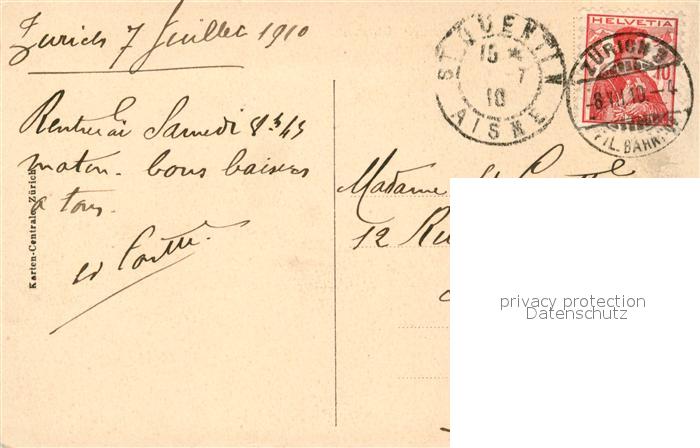 Zurich 7 Juillet 1910
Rentrerai Samedi 8h45
matin. bons baisers
a tous.
Karten-Centrale, Zürich
ST QUENTIN
15 *
7
10
AISNE
HELVETIA
10
ZÜRICH 3
-8.VII.10.--4
FIL. BAHNHOF
Madame
12 Ru
privacy protection
Datenschutz